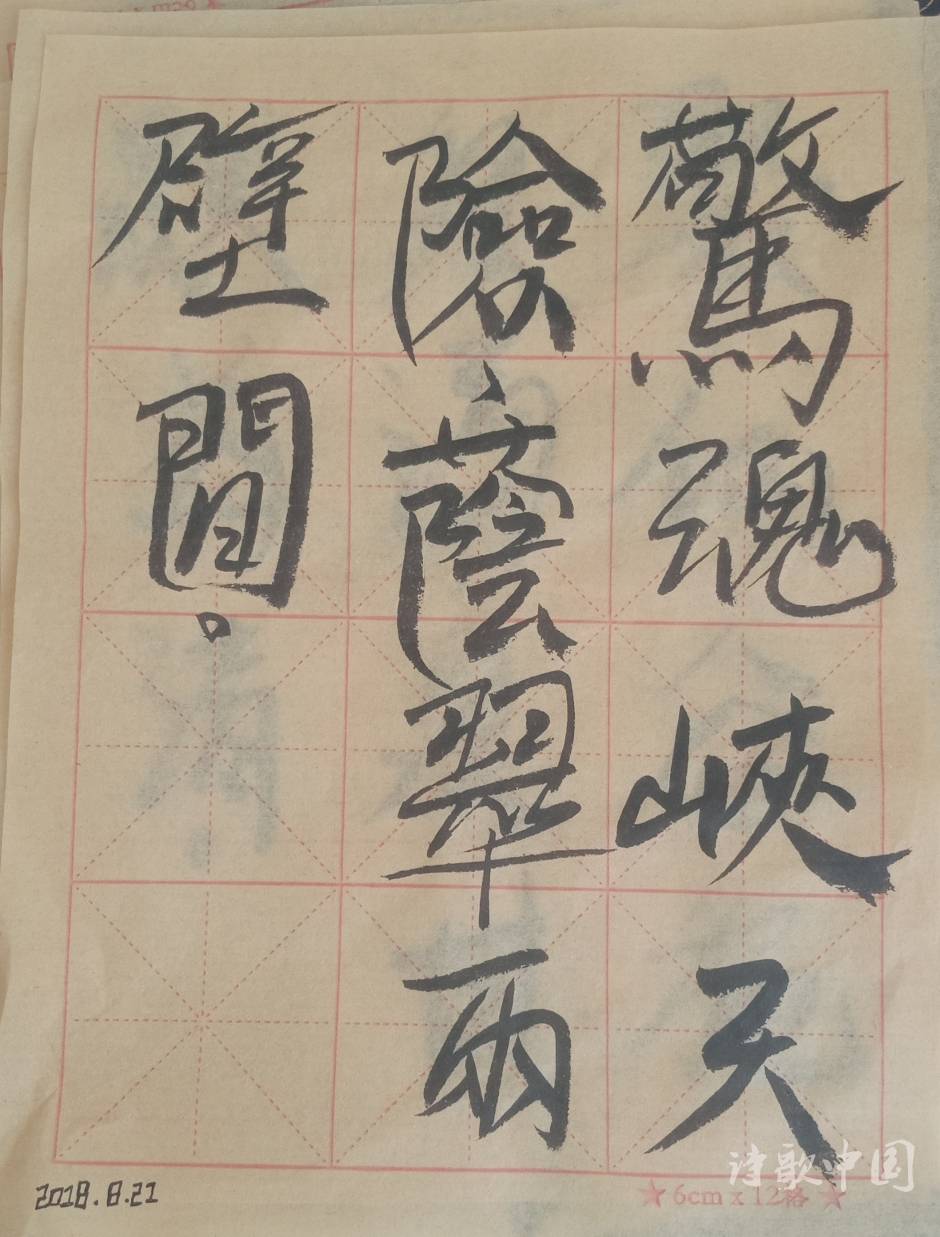 驚魂峽天
險蔭翠兩
壁間。
2018.8.21
诗歌中国
★6cm x 12格★